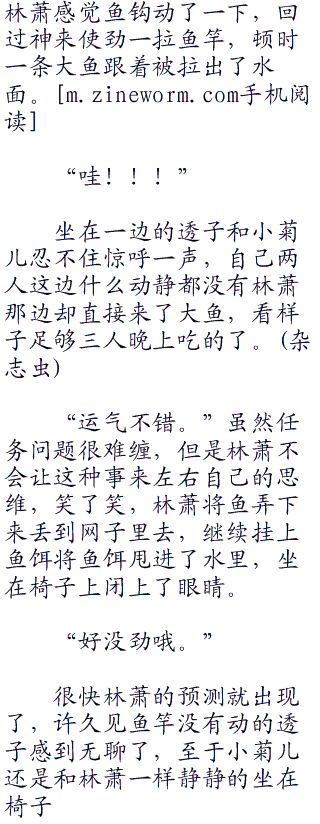 林萧感觉鱼钩动了一下，回
过神来使劲一拉鱼竿，顿时
一条大鱼跟着被拉出了水
面。[m.zineworm.com手机阅
读]
“哇！！！”
坐在一边的透子和小菊
儿忍不住惊呼一声，自己两
人这边什么动静都没有林萧
那边却直接来了大鱼，看样
子足够三人晚上吃的了。(杂
志虫)
“运气不错。”虽然任
务问题很难缠，但是林萧不
会让这种事来左右自己的思
维，笑了笑，林萧将鱼弄下
来丢到网子里去，继续挂上
鱼饵将鱼饵甩进了水里，坐
在椅子上闭上了眼睛。
“好没劲哦。”
很快林萧的预测就出现
了，许久见鱼竿没有动的透
子感到无聊了，至于小菊儿
还是和林萧一样静静的坐在
椅子